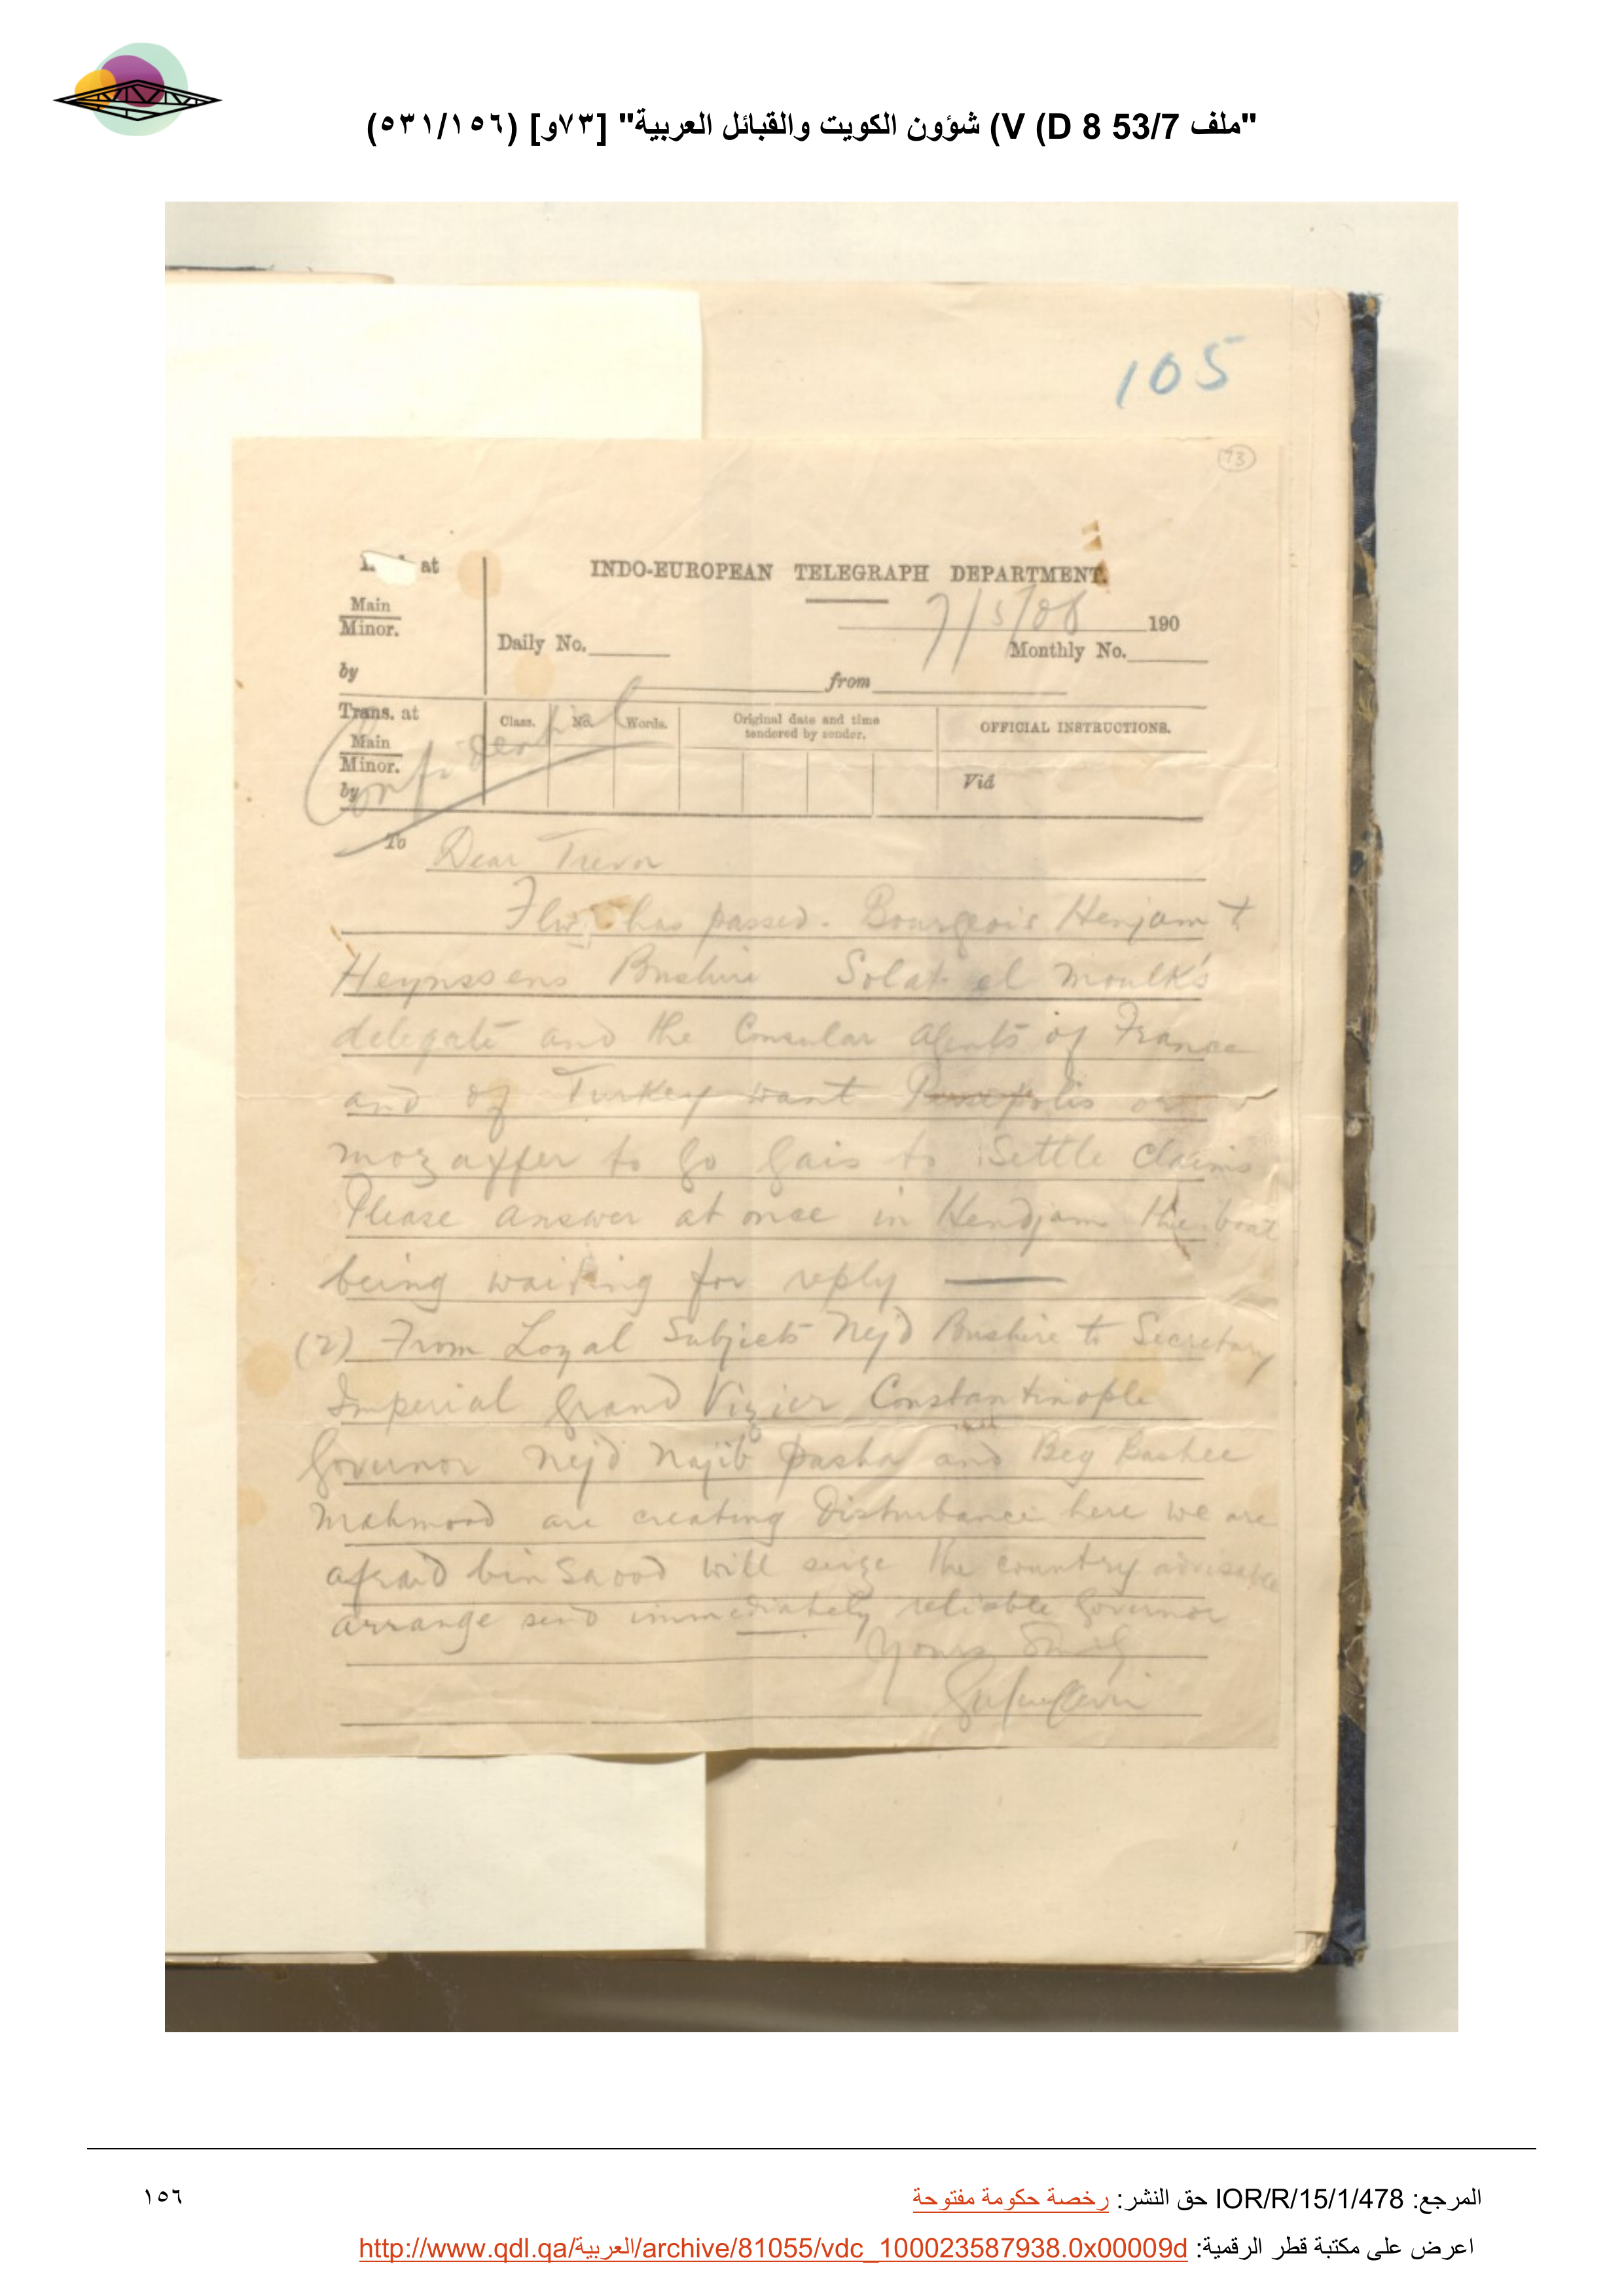 "ملف 53/7 D 8) V) شؤون الكويت والقبائل العربية" [٧٣و] (٥٣١/١٥٦)
105
73
at
INDO-EUROPEAN TELEGRAPH DEPARTMENT.
Main
Minor.
7/5/08 190
Daily No.
Monthly No.
by
from
Trans. at
Class. No. Words. Original date and time tendered by sender. OFFICIAL INSTRUCTIONS.
Main
Minor.
Viâ
by
Confidential
To Dear Trevor
has passed. Bourgeois Henjam to
Heynssens Bushire Solat el Moulk's
delegate and the Consular Agents of France
and of Turkey want Persepolis or
Mozaffer to go Gais to Settle Claims
Please answer at once in Hendjam the boat
being waiting for reply
(2) From Loyal Subjects Nejd Bushire to Secretary
Imperial Grand Vizier Constantinople
Governor Nejd Najib Pasha and Beg Bashee
Mahmood are creating Disturbance here we are
afraid bin Saood will seize the country advisable
arrange send immediately reliable Governor
Yours
المرجع: IOR/R/15/1/478 حق النشر: رخصة حكومة مفتوحة
١٥٦
اعرض على مكتبة قطر الرقمية: http://www.qdl.qa/العربية/archive/81055/vdc_100023587938.0x00009d